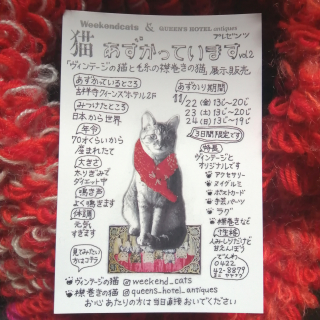 Weekendcats & QUEEN'S HOTEL antiques
プレゼンツ
猫 あずかっています vol.2
「ヴィンテージの猫と毛糸の襟巻きの猫」展示・販売
あずかっているところ
吉祥寺クイーンズホテル2F
みつけたところ
日本から世界
年令
70才くらいから
産まれたて
大きさ
太りぎみで
ダイエット中
鳴き声
よく鳴きます
体調
元気
すぎます
見てみたい
方はコチラ
あずかり期間
11/22(金)13じ〜20じ
23(土)13じ〜20じ
24(日)13じ〜19じ
3日間限定です
特長
ヴィンテージと
オリジナルです
アクセサリー
ヌイグルミ
ポストカード
手芸パーツ
ラグ
襟巻きなど
性格
人みしりだけど
甘えんぼう
でんわ
0422
42-8879
ヴィンテージの猫 @weekend_cats
襟巻きの猫 @queens_hotel_antiques
お心あたりの方は当日直接おいでください